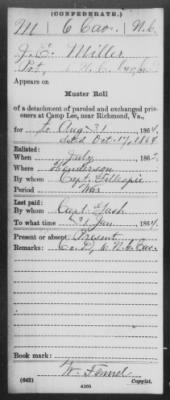 (CONFEDERATE.)
M 6 Cav. N.C.
J. E. Miller
Pvt,
Appears on
Muster Roll
of a detachment of paroled and exchanged prisoners at Camp Lee, near Richmond, Va.,
for to Aug 31, 1864.
dated Oct. 17, 1864
Enlisted:
When July, 186
Where Henderson
By whom Capt. Gillespie
Period War
Last paid:
By whom Capt.
To what time 31 Jan, 1864.
Present or absent Present
Remarks: Co. D, 6 N.C. Cav.
Book mark:
W.
(642) Copyist.